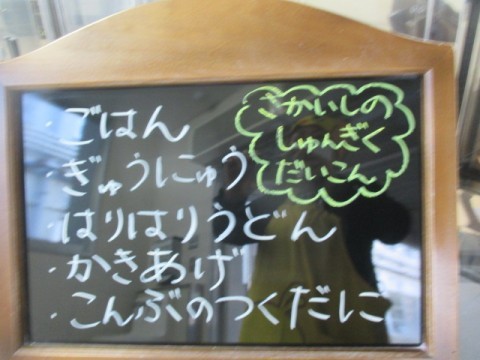 ・ごはん
・ぎゅうにゅう
・はりはりうどん
・かきあげ
・こんぶのつくだに
さかいしの
しゅんぎく
だいこん